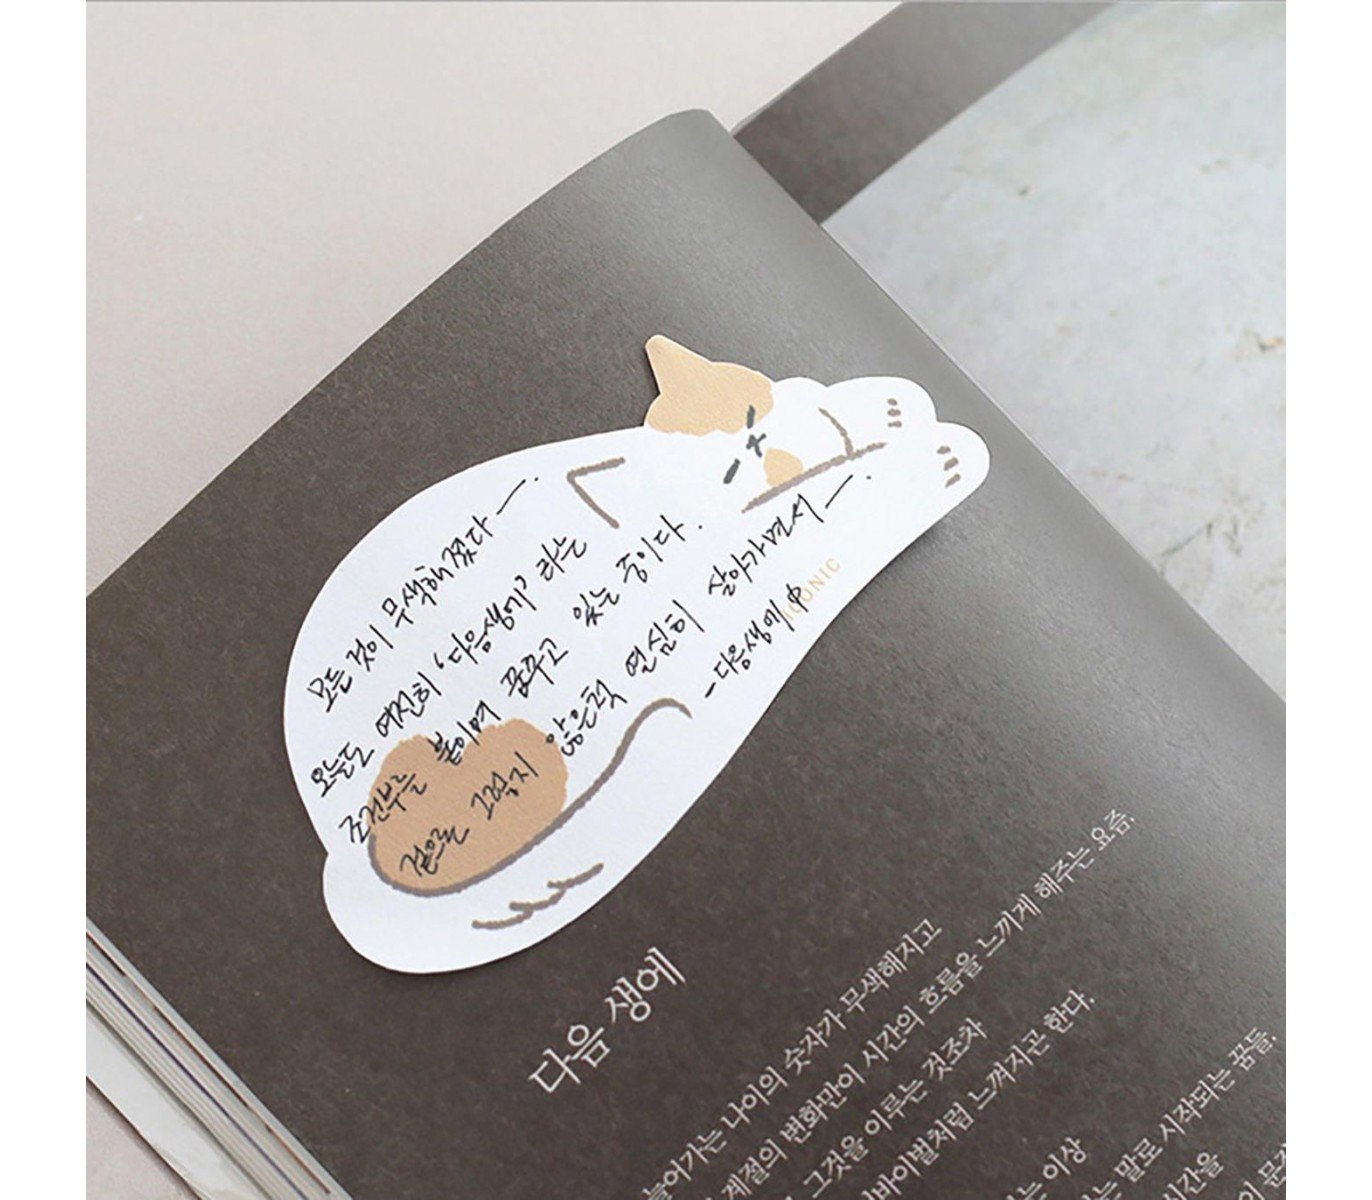 모든 것이 무색해졌다 —.
오늘도 여전히 '다음생에' 라는
조건부를 붙이며 꿈꾸고 있는 중이다.
겉으론 그렇지 않은척 열심히 살아가면서 —.
- 다음생에 中
ICONIC
다음 생에
늘어가는 나이의 숫자가 무색해지고
계절의 변화만이 시간의 흐름을 느끼게 해주는 요즘,
그것을 이루는 것조차
바이벌처럼 느껴지곤 한다.
는 이상
는 말로 시작되는 꿈들,
시간을